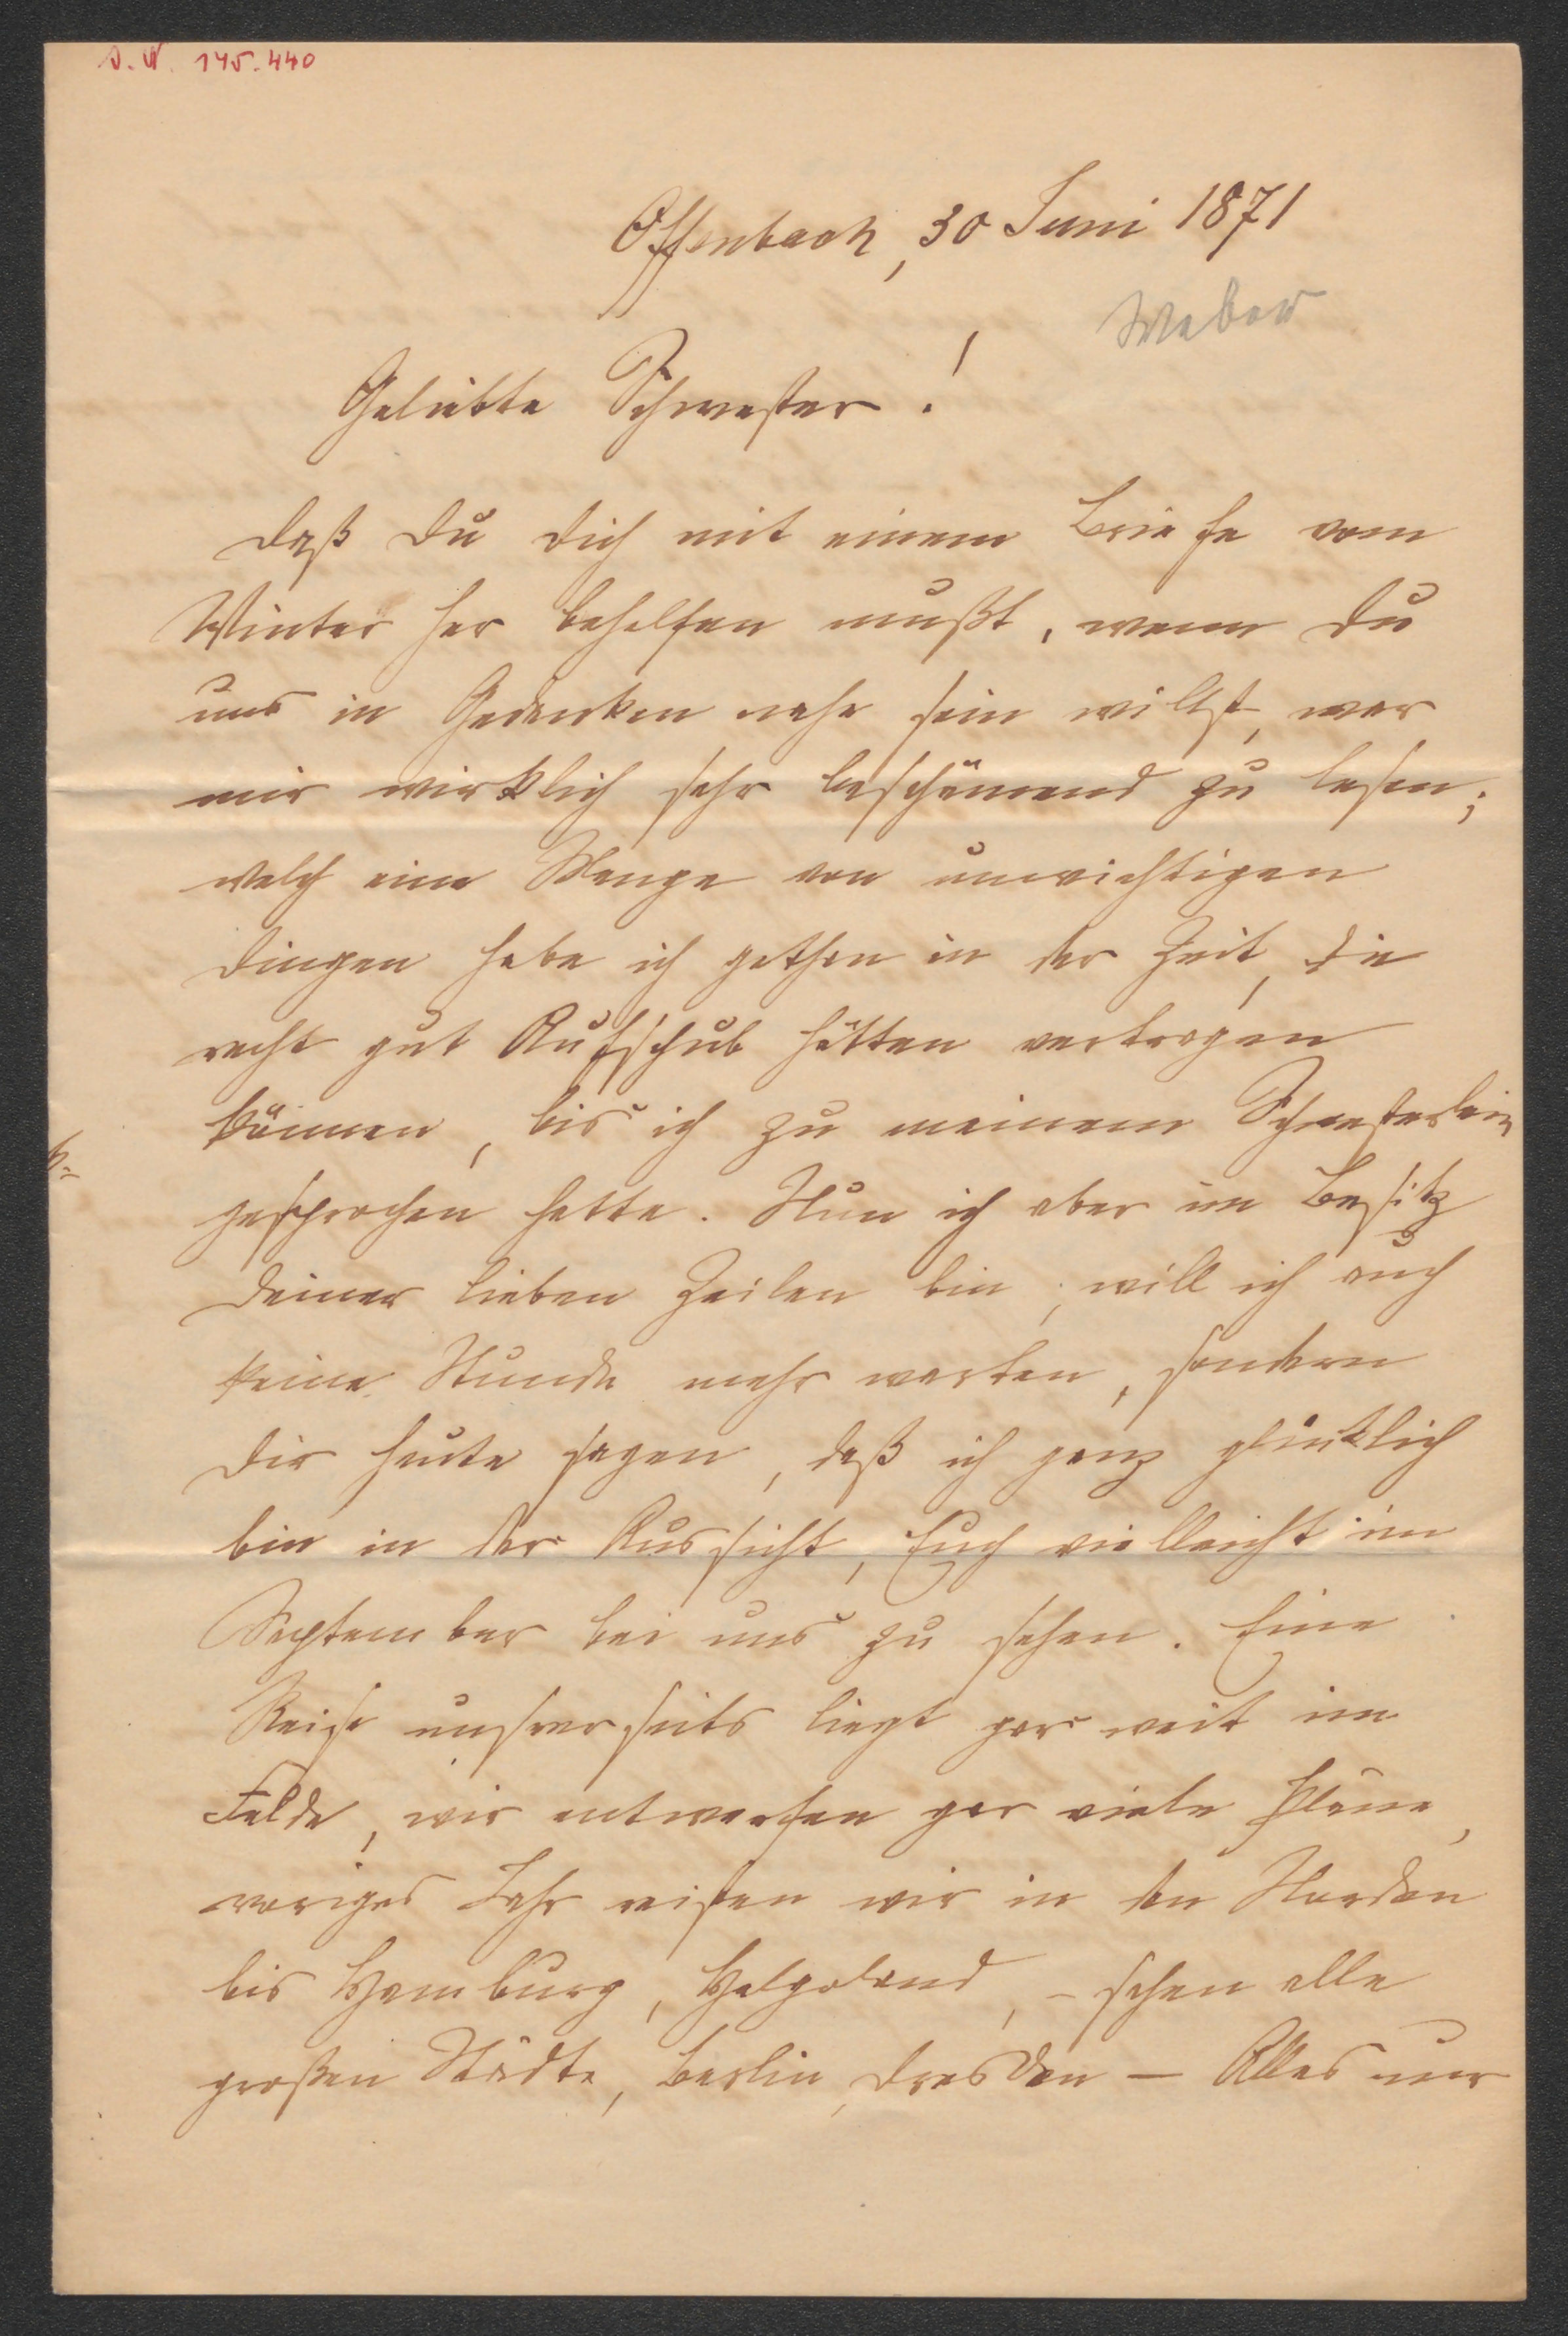 I.N. 145.440
Offenbach, 30 Juni 1871
Weber
Geliebte Schwester!
Daß Du Dich mit einem Briefe vom
Winter her behelfen mußt, wenn Du
uns in Gedanken nahe sein willst, war
mir wirklich sehr beschämend zu lesen;
welch eine Menge von unwichtigen
Dingen habe ich gethan in der Zeit, die
recht gut Aufschub hätten vertragen
können, bis ich zu meinem Schwesterlein
gesprochen hatte. Nun ich aber im Besitz
Deiner lieben Zeilen bin, will ich auch
keine Stunde mehr warten, sondern
Dir heute sagen, daß ich ganz glücklich
bin in der Aussicht, Euch vielleicht im
September bei uns zu sehen. Eine
Reise unsrerseits liegt gar weit im
Felde, wir entwerfen gar viele Pläne,
voriges Jahr reisten wir in den Norden
bis Hamburg, Helgoland, – sahen alle
großen Städte, Berlin, Dresden – Alles nur